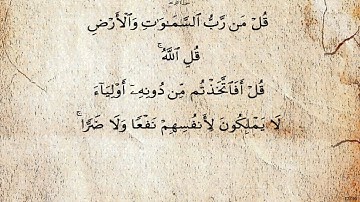 قُلۡ مَن رَّبُّ ٱلسَّمَٰوَٰتِ وَٱلۡأَرۡضِ
قُلِ ٱللَّهُۚ
قُلۡ أَفَٱتَّخَذۡتُم مِّن دُونِهِۦٓ أَوۡلِيَآءَ
لَا يَمۡلِكُونَ لِأَنفُسِهِمۡ نَفۡعٗا وَلَا ضَرّٗاۚ